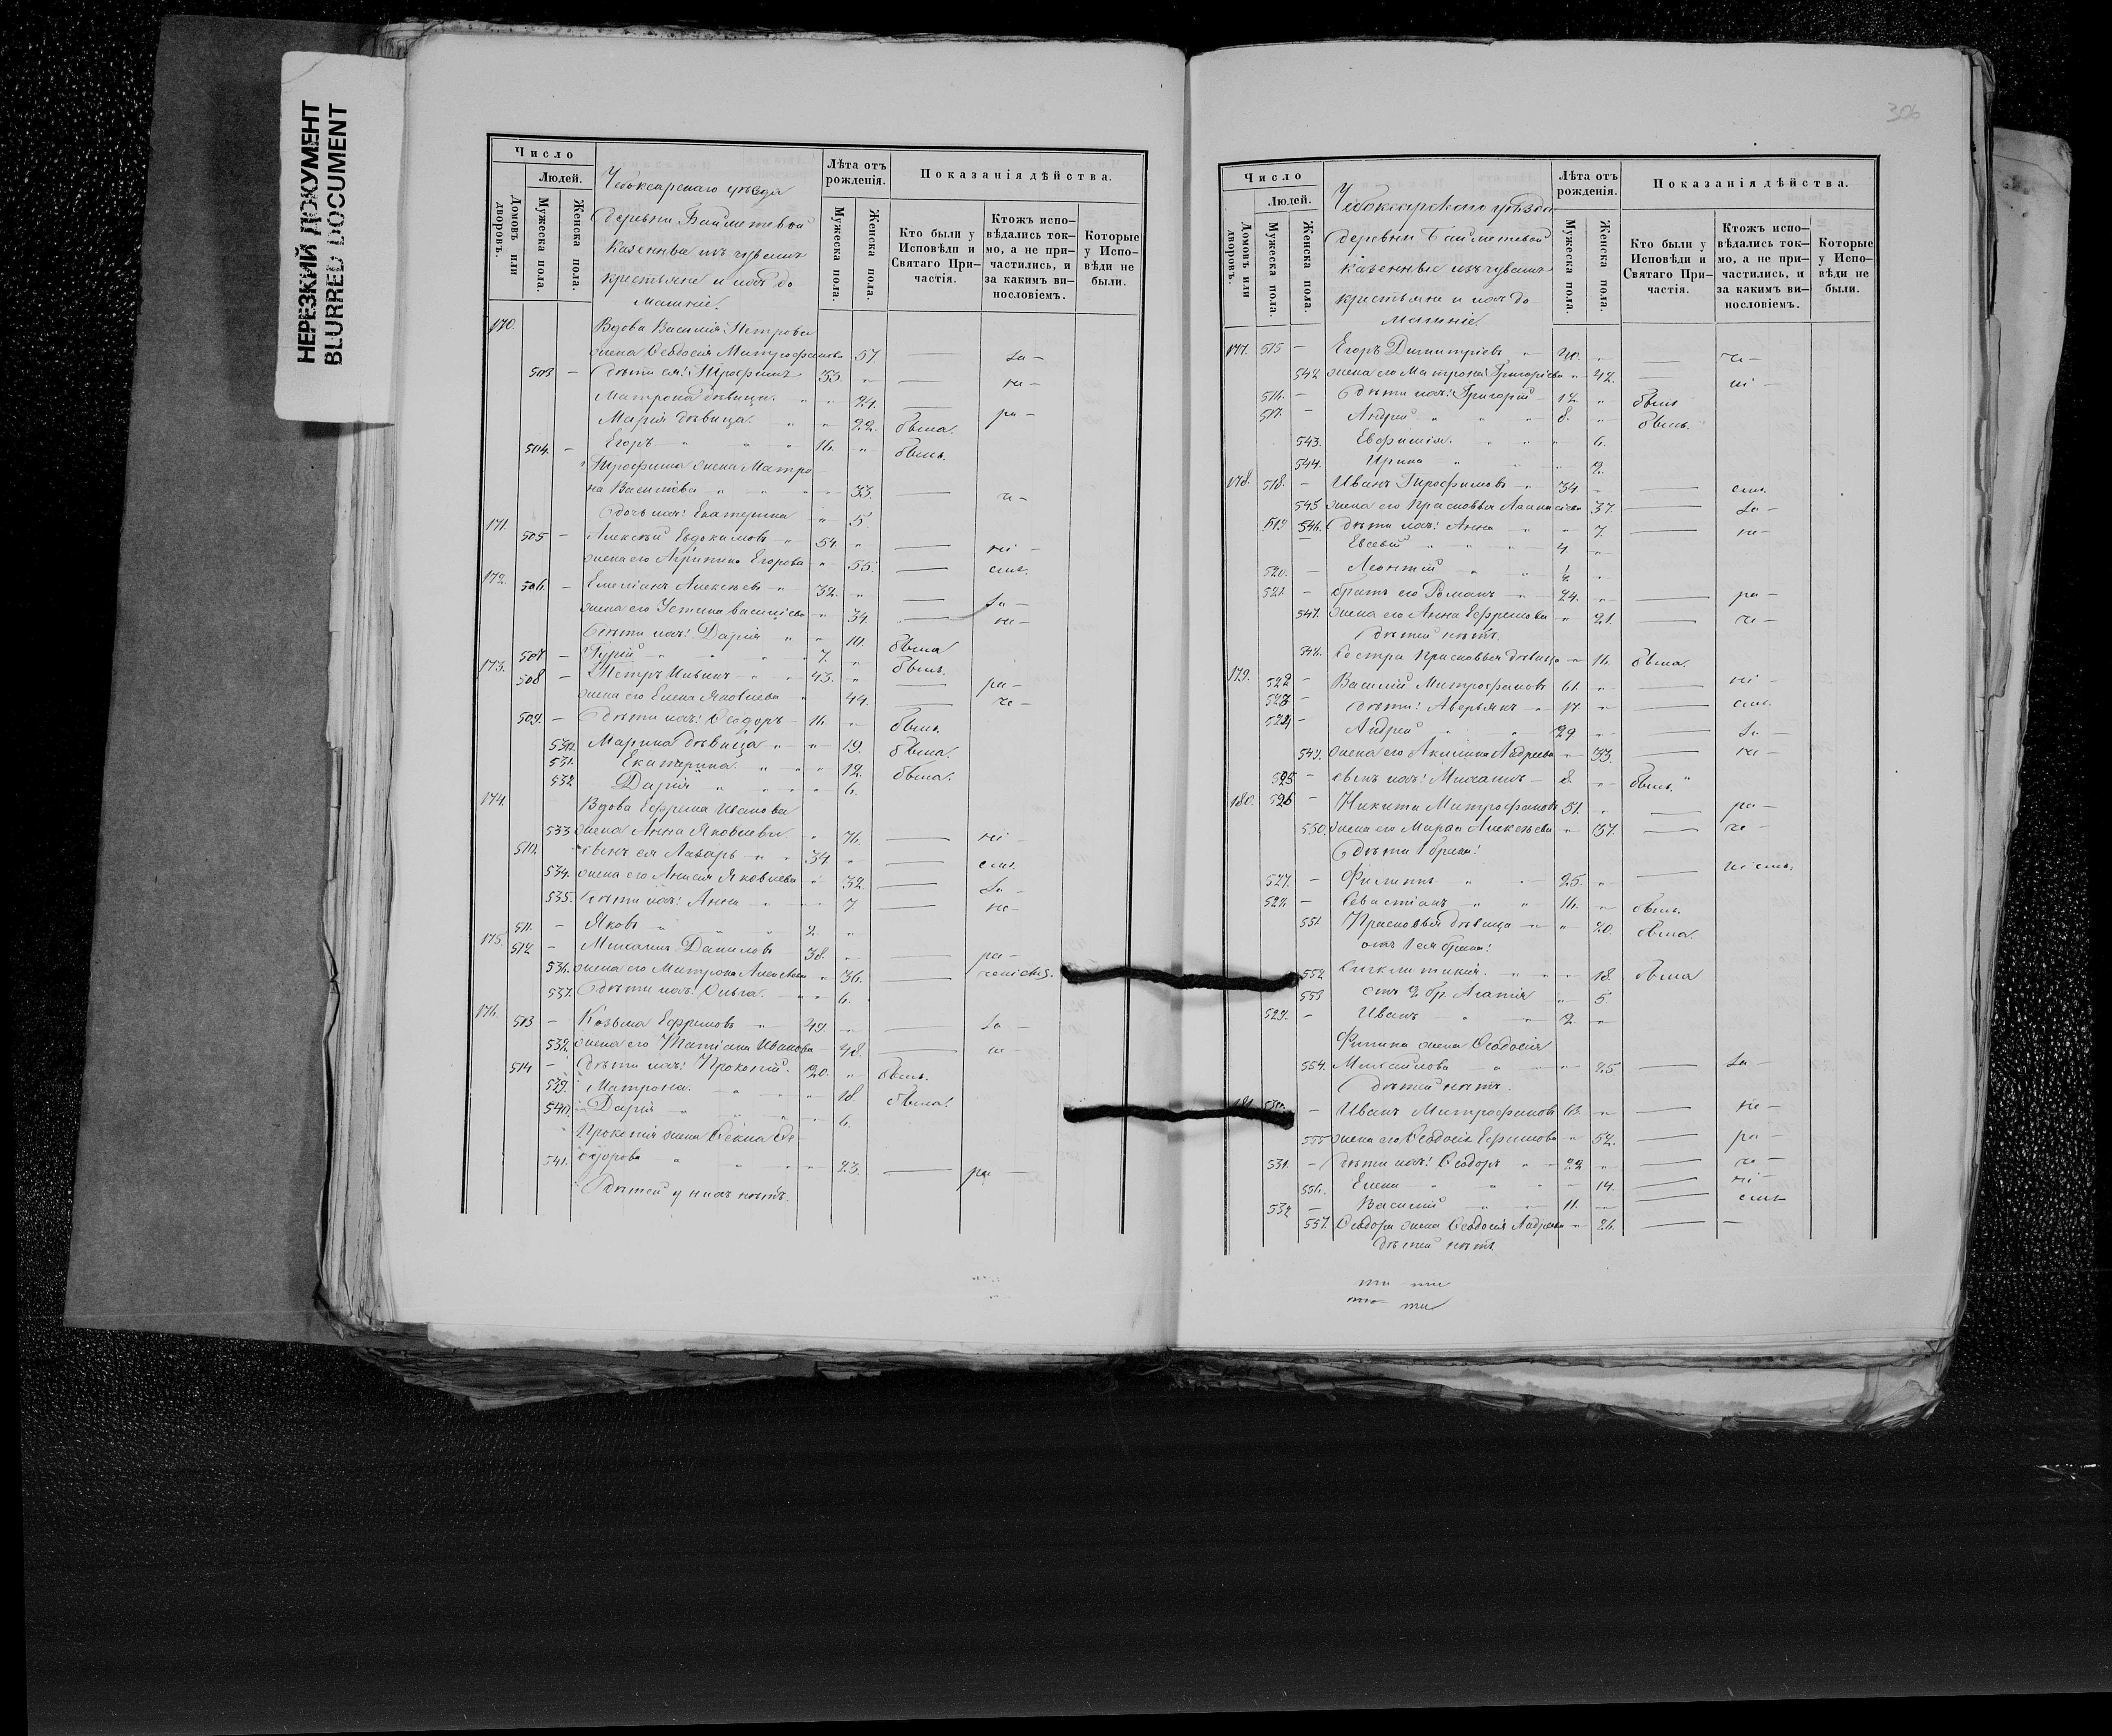 НЕРЕЗКИЙ ДОКУМЕНТ
BLURRED DOCUMENT
Число
Людей.
Домовъ или дворовъ.
Мужеска пола.
Женска пола.
Чебоксарскаго уѣзда
деревни Байметевой
казенные изъ чувашъ
крестьяне и ихъ до
машніе.
Лѣта отъ рожденія.
Мужеска пола.
Женска пола.
Показанія дѣйства.
Кто были у Исповѣди и Святаго При-частія.
Ктожъ испо-вѣдались ток-мо, а не при-частились, и за какимъ ви-нословіемъ.
Которые у Испо-вѣди не были.
170. Вдова Василія Петрова
жена Ѳеодосія Митрофанова 57. —
503 — дѣти ея: Трофимъ 33. " —
Матрона дѣвица. " " 24. —
Марія дѣвица. " " 22. была.
504. — Егоръ " " " 16. " былъ.
Трофима жена Матро
на Василіева " " " 33. —
дочь ихъ: Екатерина " 5.
171. 505 — Алексѣй Евдокимовъ " 54. " —
жена его Егорова " 55. —
172. 506. — Емеліанъ Алексѣевъ " 32. " —
жена его Устина Василіева " 34. —
дѣти ихъ: Дарія " " 10. была
507 — Гурій " " " 7. " былъ.
173. 508 — Петръ " " 43. " —
жена его Елена Яковлева " 44. —
509. — дѣти ихъ: Ѳеодоръ — 16. " былъ.
530. Марина дѣвица " " 19. была.
531. Екатерина. " " " 12. была.
532 Дарія " " " " 6.
174. Вдова Ефрема Иванова
533 жена Анна Яковлева. " 76. —
510. сынъ ея Лазарь " " 34. " —
534. жена его Яковлева " 32. —
535. дѣти ихъ: Анна " " 7 —
511. — Яковъ " " " 2. "
175. 512 — Михаилъ Даниловъ 38. " —
536. жена его Матрона " 36. —
537. дѣти ихъ: Ольга. " " 6.
176. 513 — Козьма Ефремовъ " 49. " —
538. жена его Татіана Иванова 48. —
514 — дѣти ихъ: Прокопій. 20. " былъ.
539. Матрона. " " " 18 была.
540. Дарія " " " 6.
Прокопія жена Ѳекла Ѳе-
541. одорова " " " 23. — ра —
Дѣтей у нихъ нѣтъ.
306
Число
Людей.
Домовъ или дворовъ.
Мужеска пола.
Женска пола.
Чебоксарскаго уѣзда
деревни Байметевой
казенные изъ чувашъ
крестьяне и ихъ до
машніе.
Лѣта отъ рожденія.
Мужеска пола.
Женска пола.
Показанія дѣйства.
Кто были у Исповѣди и Святаго При-частія.
Ктожъ испо-вѣдались ток-мо, а не при-частились, и за какимъ ви-нословіемъ.
Которые у Испо-вѣди не были.
177. 515 — Егоръ Димитріевъ " 40. " —
542 жена его Матрона Григоріева " 42. —
516. — дѣти ихъ: Григорій — 12. " былъ
517. — Андрей " " " 8. " былъ.
543. Евфимія. " " " 6.
544. Ирина " " " 2.
178. 518. — Иванъ Трофимовъ " 34. " —
545 жена его Прасковья 37. —
546. дѣти ихъ: Анна " " 7. —
519 — Евсевій " " " 4 "
520. — Леонтій " " ½ "
521. — братъ его Романъ " 24. " — ра —
547. жена его Анна Ефремова " 21. —
дѣтей нѣтъ.
548. Сестра Прасковья дѣвица " 16. была.
179. 522 — Василій Митрофановъ 61. " —
523 — дѣти: Аверьянъ " 17 " —
524 — Андрей " " 29 " —
549. жена его Акилина Андреева " 33. —
525 — сынъ ихъ: Михаилъ — 8. " былъ.
180. 526 — Никита Митрофановъ 51. " — ра —
550. жена его Марѳа Алексѣева " 37. —
Дѣти 1 брака:
527. — Филиппъ " " 25. " —
528. — Севастіанъ " " 16. " былъ.
551 Прасковья дѣвица " " 20. была.
отъ 1 ея брака:
552 18. была
553 отъ 2 бр. Агапія " 5.
529. — Иванъ " " 2 "
Филипа жена Ѳеодосія
554. Михайлова " " " 25 —
Дѣтей нѣтъ.
181. 530. — Иванъ Митрофановъ 63. " —
555 жена его Ѳеодосія Ефимова " 52. — ра —
531. — дѣти ихъ: Ѳеодоръ " " 22 " —
556. Елена " " " 14. —
532 — Василій " " 11. " —
557. Ѳеодора жена Ѳеодосія Андреева " 26. — —
дѣтей нѣтъ